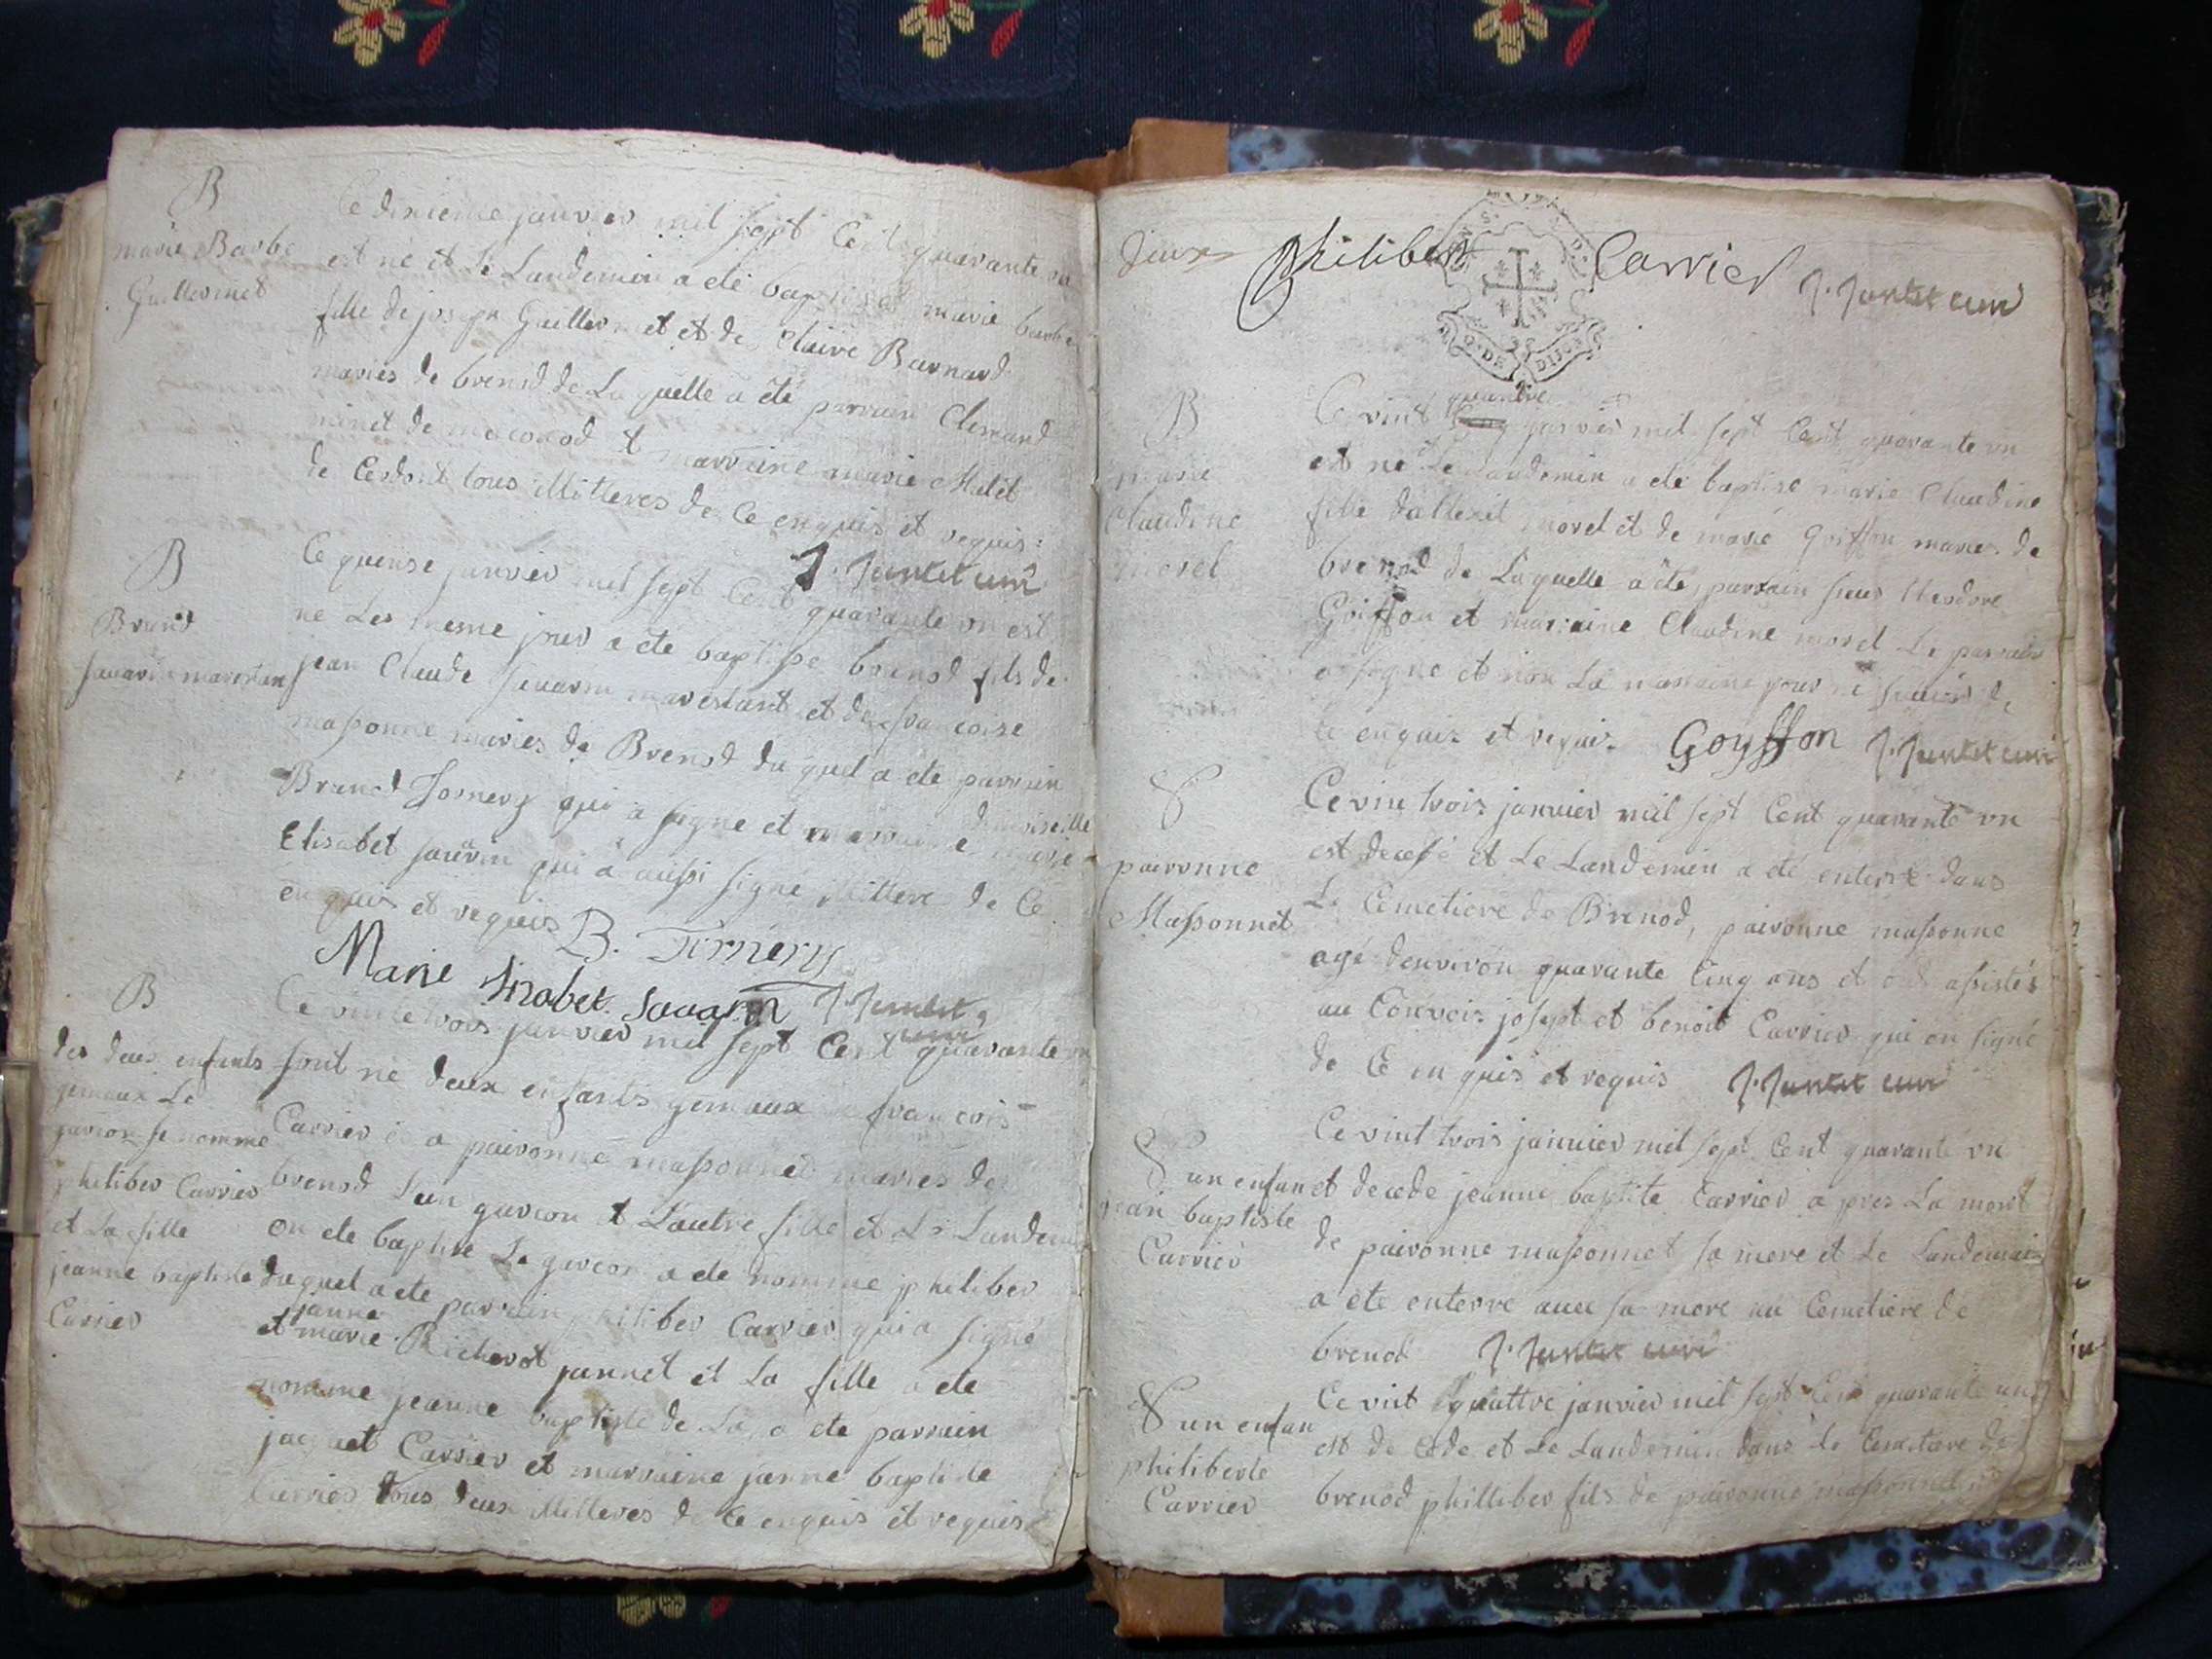 B
marie Barbe
Guillermet
Ce dixieme janvier mil sept Cent quarante un
est ne et le Landemin a eté baptisé marie barbe
fille de joseph Guillermet et de Claire Barnard
mariés de brenod de Laquelle a été parrain Clemand
et marraine marie
de Cerdont tous illitteres de Ce enquis et requis
J. Juntet curé
B
Brunod
Ce quense janvier mil sept Cent quarante un est
ne Les mesme jour a ete baptise brenod fils de
jean Claude Savarin marestant et de francoise
massonne maries de Brenod du quel a ete parrain
qui a signe et marraine demoiselle marie
Elisabet savarin qui a aussi signé illittere de Ce
enquis et requis B.
Marie savarin J. Juntet curé
B
des deux enfants
jemaux Le
garcon se nomme
philiber Carrier
et La fille
jeanne baptiste
Carrier
Ce vinte trois janvier mil sept Cent quarante un
sont né deux enfants gemaux a francois
Carrier et a paironne massonnet maries de
brenod Lun garcon et Lautre fille et Le Landemin
on ete baptise Le garcon a ete nomme philiber
duquel a ete parrain philiber Carrier qui a signé
et janne marie Richerot jannet et La fille a ete
nomme jeanne baptiste de La a ete parrain
jaquet Carrier et marraine janne baptiste
Carrier tous deux illitteres de Ce enquis et requis
deux
Philibert Carrier J. Juntet curé
DE DIJON
B
marie
Claudine
morel
Ce vint quattre janvier mil sept Cent quarante un
est ne et Le Landemin a eté baptisé marie Claudine
fille morel et de marie Goiffon maries de
brenod de Laquelle a eté parrain sieur
Goiffon et marraine Claudine morel Le parrain
a signe et non La marraine pour ne savoir de
Ce enquis et requis Goyffon J. Juntet curé
paironne
Massonnet
Ce vin trois janvier mil sept Cent quarante un
est decesé et Le Landemin a eté enterré dans
Le Cemetiere de Brenod, paironne massonne
agé denviron quarante Cinq ans et ont assistés
au Convois josept et benoit Carrier qui on signé
de Ce enquis et requis J. Juntet curé
un enfan
jean baptiste
Carrier
Ce vint trois janvier mil sept Cent quarante un
et decede jeanne baptite Carrier a pres La mort
de paironne massonnet sa mere et Le Landemain
a eté enterre avec sa mere au Cemetiere de
brenod J. Juntet curé
un enfan
philiberte
Carrier
Ce vint quattre janvier mil sept Cent quarante un
est de Cede et Le Landemin dans Le Cemetiere de
brenod philliber fils de paironne massonnet